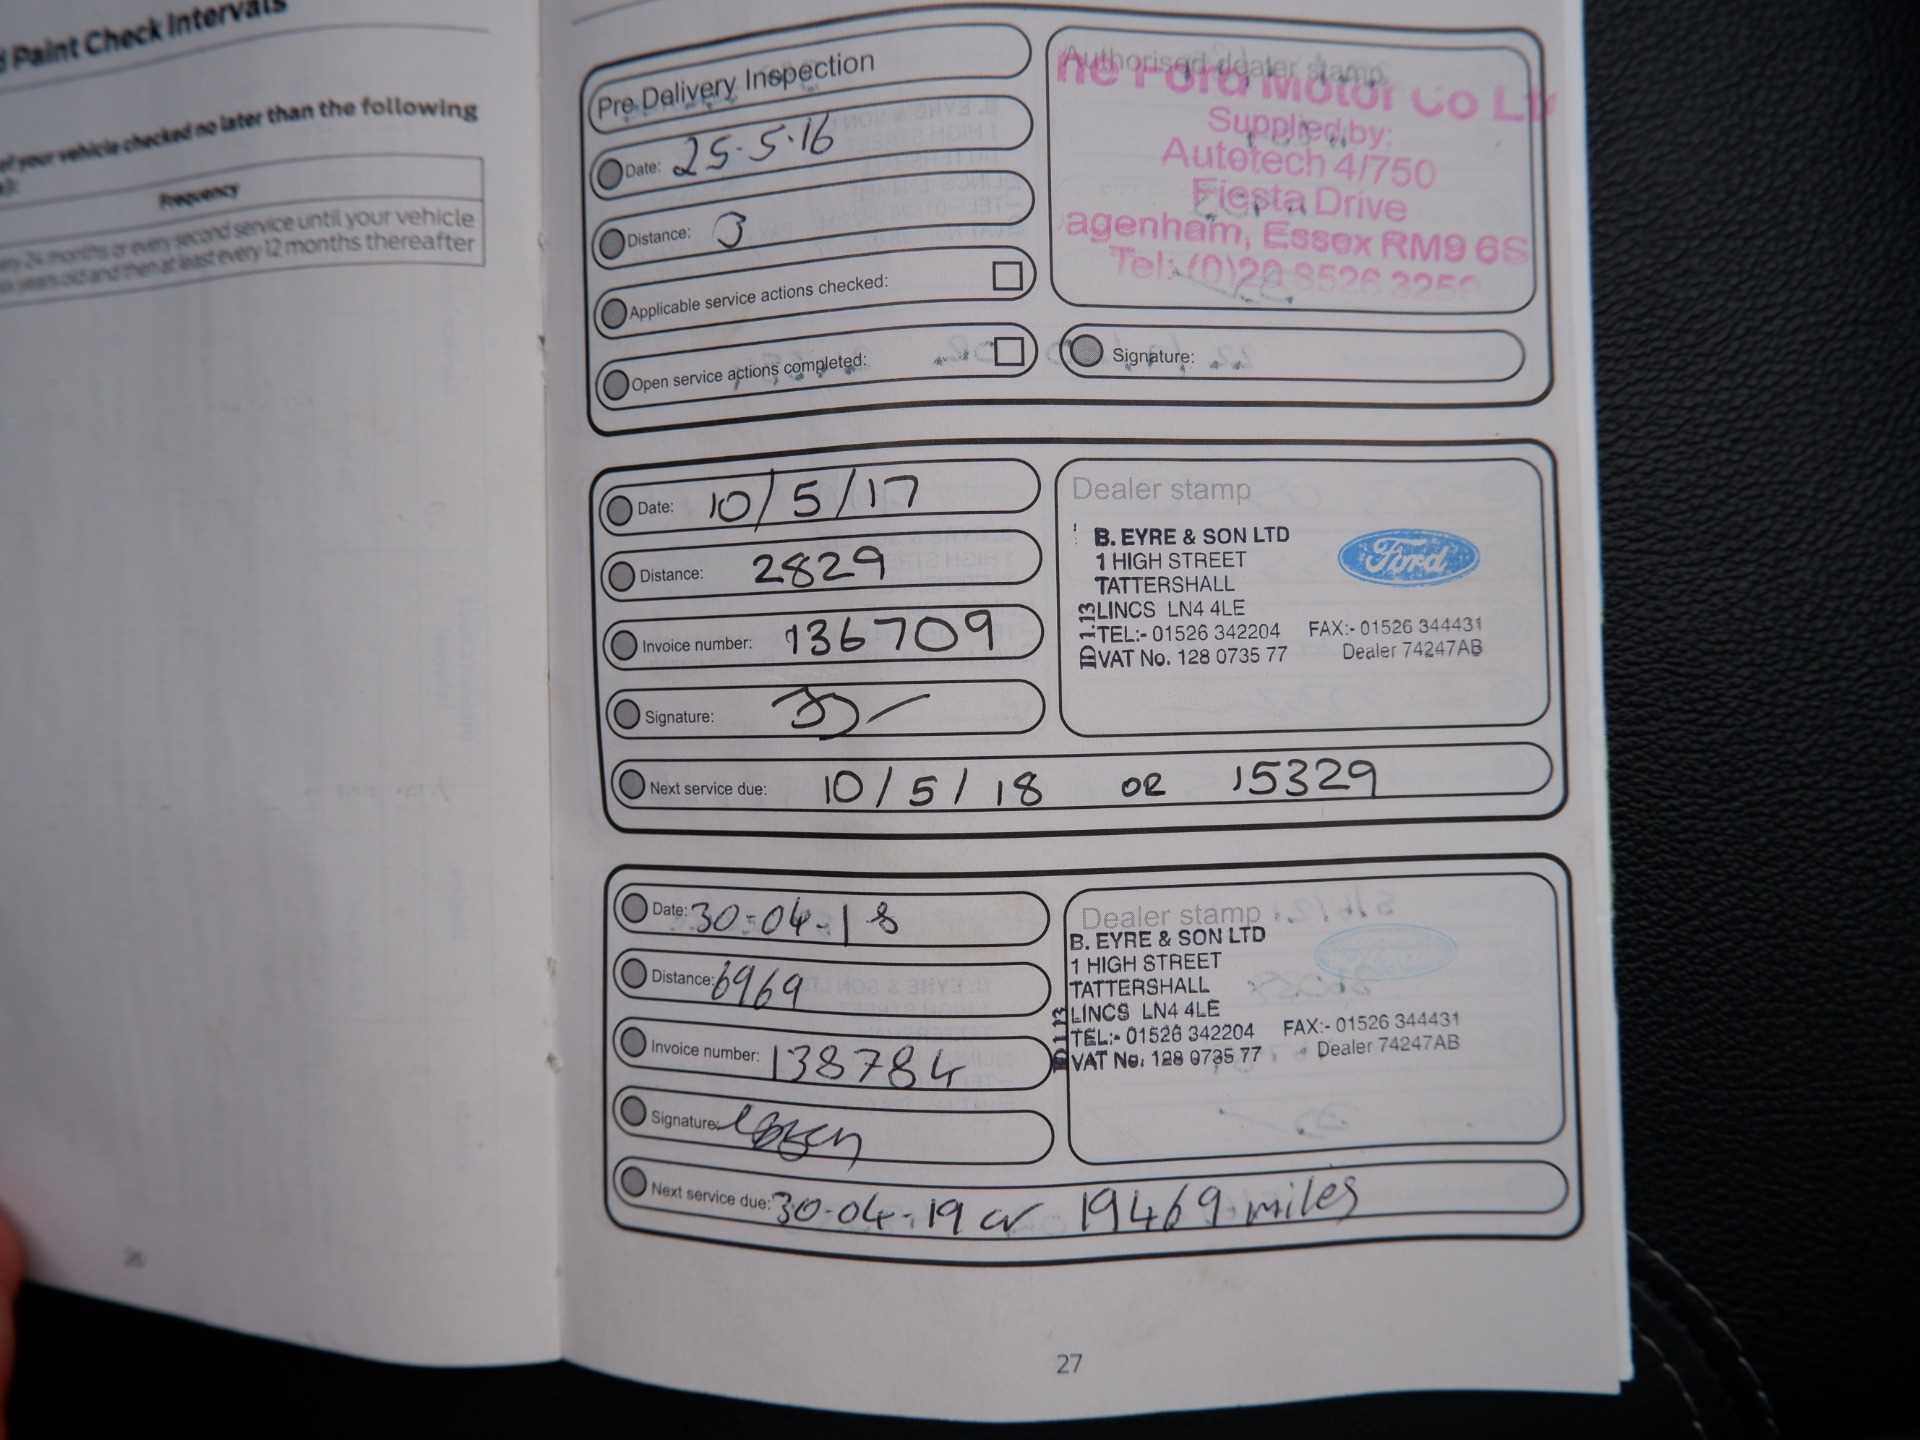 Paint Check Intervals
of your vehicle checked no later than the following
Frequency
24 months or every second service until your vehicle
years old and then at least every 12 months thereafter
26
Pre Delivery Inspection
Date: 25·5·16
Distance: 3
Applicable service actions checked:
Open service actions completed:
Authorised dealer stamp
he Ford Motor Co Lt
Supplied by:
Autotech 4/750
Fiesta Drive
agenham, Essex RM9 6S
Tel: (0)20 8526 325
Signature:
Date: 10/5/17
Distance: 2829
Invoice number: 136709
Signature:
Next service due: 10/5/18 OR 15329
Dealer stamp
B. EYRE & SON LTD
1 HIGH STREET
TATTERSHALL
LINCS LN4 4LE
TEL:- 01526 342204 FAX:- 01526 344431
VAT No. 128 0735 77 Dealer 74247AB
ID 1.13
Ford
Date: 30-04-18
Distance: 6969
Invoice number: 138784
Signature:
Next service due: 30-04-19 or 19469 miles
Dealer stamp
B. EYRE & SON LTD
1 HIGH STREET
TATTERSHALL
LINCS LN4 4LE
TEL:- 01526 342204 FAX:- 01526 344431
VAT No. 128 0735 77 Dealer 74247AB
ID 1.13
27